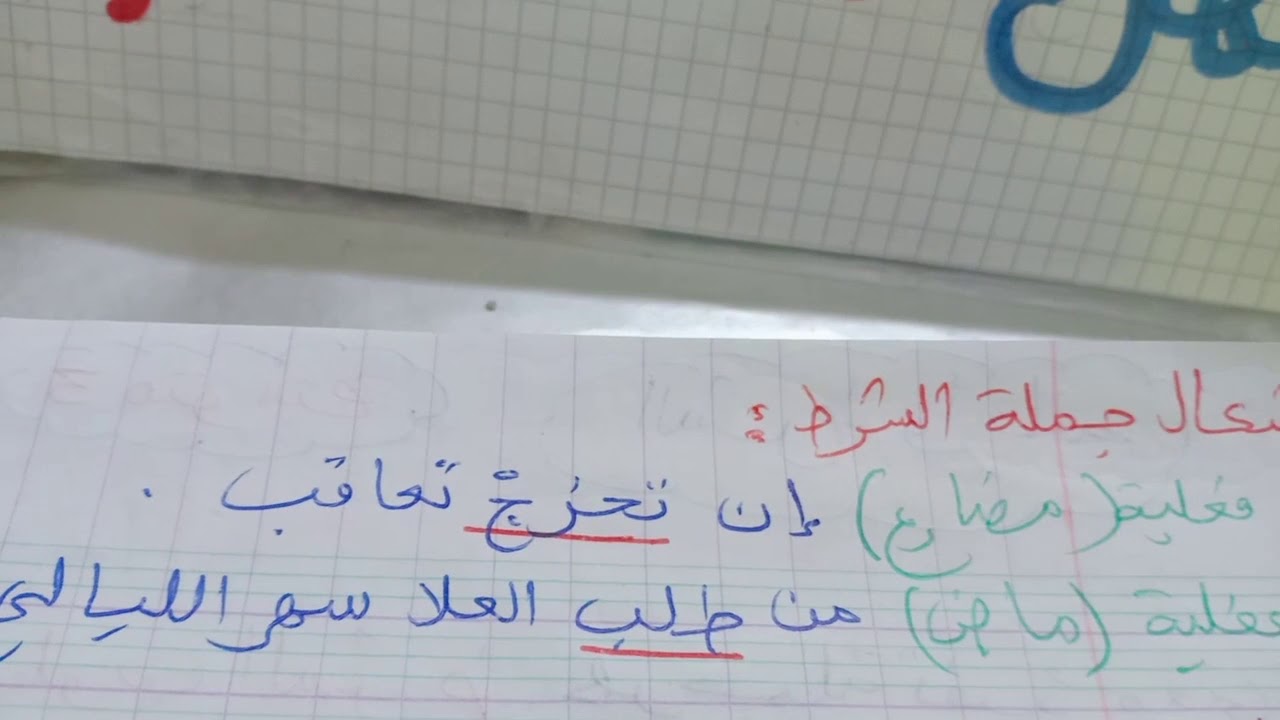 جملة الشرط :
فعلية (مضارع) إن تخرجْ تعاقب .
فعلية (ماض) من طلب العلا سهر الليالي